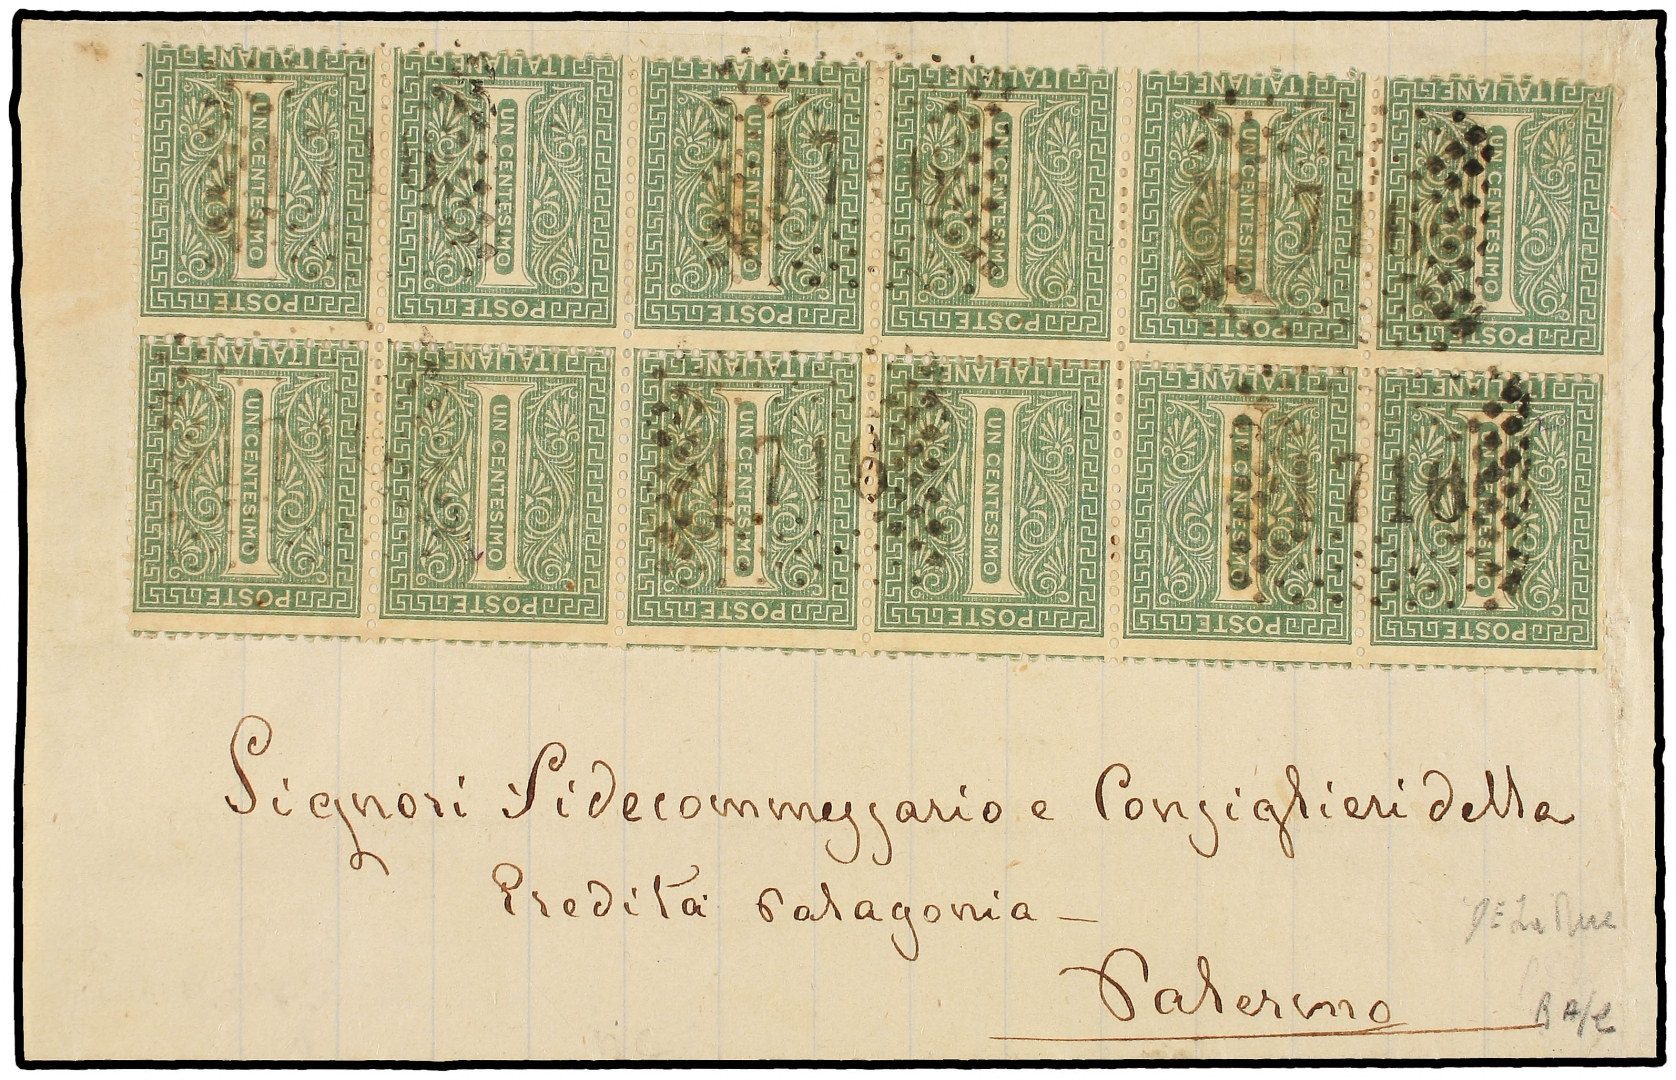 ITALIANE ITALIANE ITALIANE ITALIANE ITALIANE ITALIANE
UN CENTESIMO UN CENTESIMO UN CENTESIMO UN CENTESIMO UN CENTESIMO UN CENTESIMO
POSTE POSTE POSTE POSTE POSTE POSTE
ITALIANE ITALIANE ITALIANE ITALIANE ITALIANE ITALIANE
UN CENTESIMO UN CENTESIMO UN CENTESIMO UN CENTESIMO UN CENTESIMO UN CENTESIMO
1716 1716
POSTE POSTE POSTE POSTE POSTE POSTE
Signori Fidecommessario e Consiglieri della
Eredità Palagonia -
Palermo
De La Rue